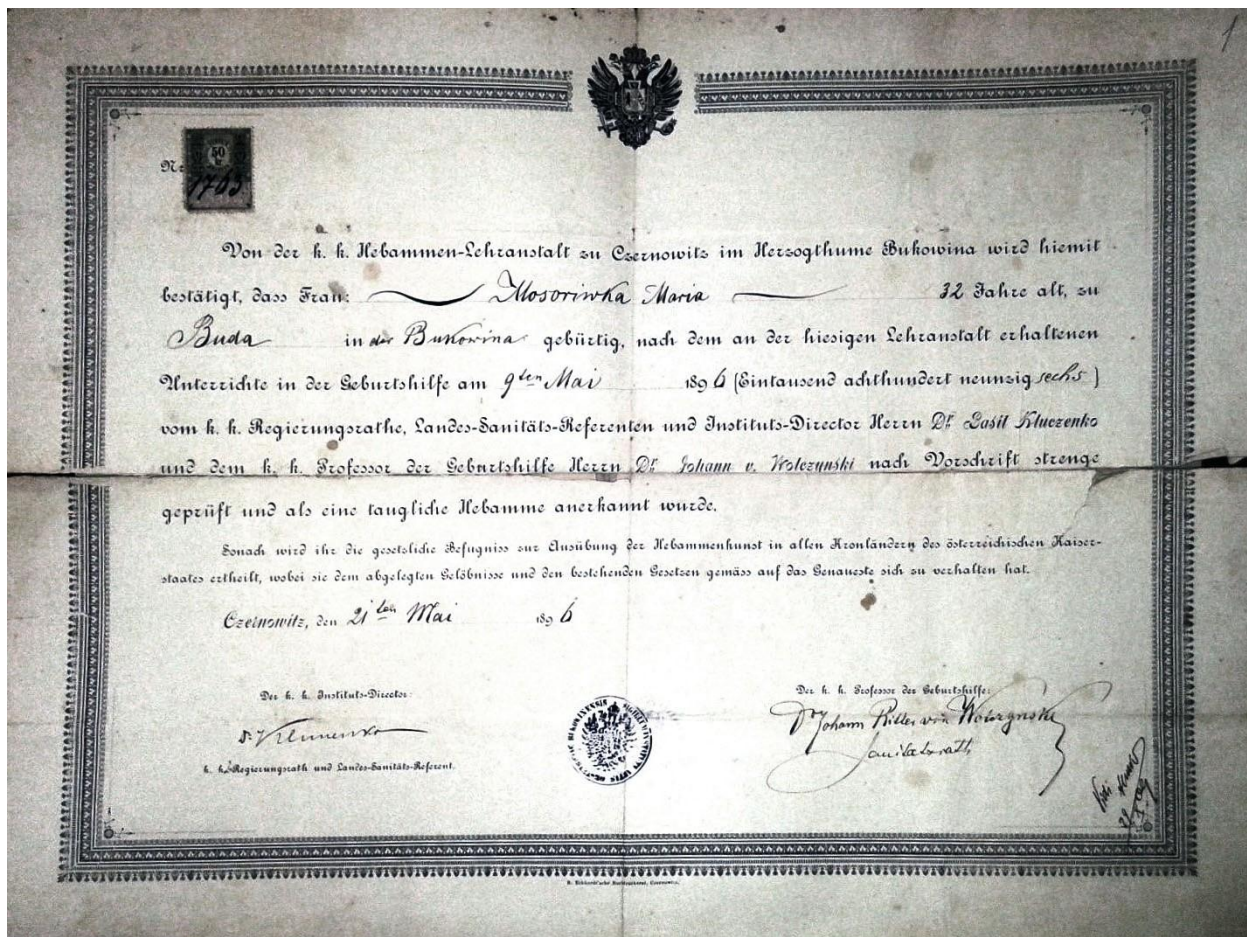 1
50
kr
Nr
1763
Von der k. k. Hebammen-Lehranstalt zu Czernowitz im Herzogthume Bukowina wird hiemit
bestätigt, dass Frau: Mosoriwka Maria 32 Jahre alt, zu
Buda in der Bukowina gebürtig, nach dem an der hiesigen Lehranstalt erhaltenen
Unterrichte in der Geburtshilfe am 9ten Mai 1896 (Eintausend achthundert neunzig sechs)
vom k. k. Regierungsrathe, Landes-Sanitäts-Referenten und Instituts-Director Herrn Dr. Basil Kluczenko
und dem k. k. Professor der Geburtshilfe Herrn Dr. Johann v. Wolczynski nach Vorschrift strenge
geprüft und als eine taugliche Hebamme anerkannt wurde.
Sonach wird ihr die gesetzliche Befugniss zur Ausübung der Hebammenkunst in allen Kronländern des österreichischen Kaiser-
staates ertheilt, wobei sie dem abgelegten Gelöbnisse und den bestehenden Gesetzen gemäss auf das Genaueste sich zu verhalten hat.
Czernowitz, den 21ten Mai 1896
Der k. k. Instituts-Director:
Der k. k. Professor der Geburtshilfe:
Dr Johann Ritter von Wolczynski
Sanitätsrath
k. k. Regierungsrath und Landes-Sanitäts-Referent.